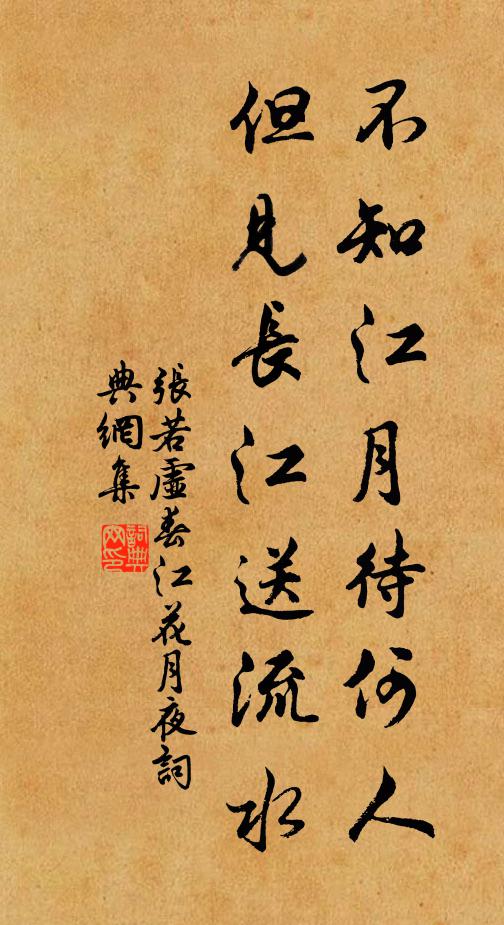 不知江月待何人
但見長江送流水
張若虛春江花月夜詞
典網集
詞典
网印